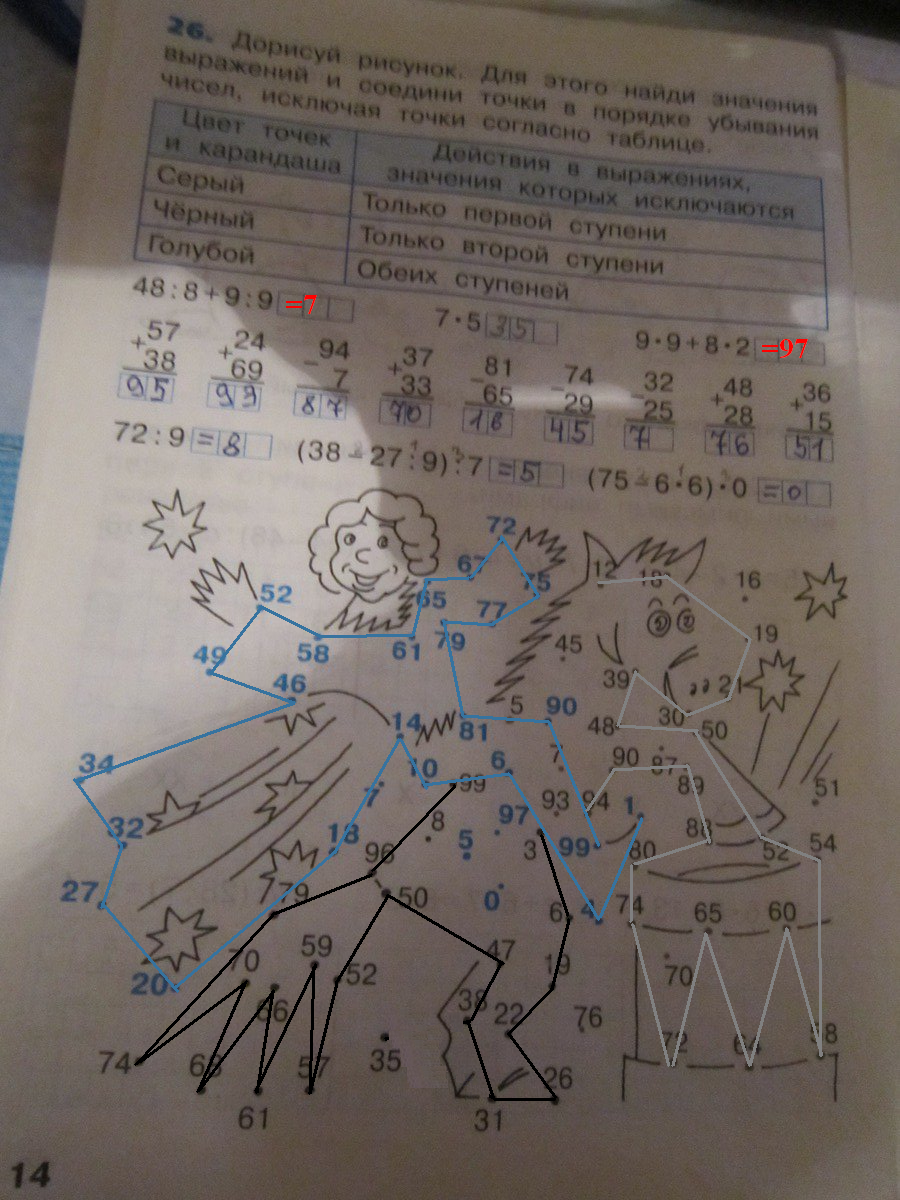 26. Дорисуй рисунок. Для этого найди значения
выражений и соедини точки в порядке убывания
чисел, исключая точки согласно таблице.
Цвет точек
и карандаша
Действия в выражениях,
значения которых исключаются
Серый
Только первой ступени
Чёрный
Только второй ступени
Голубой
Обеих ступеней
48 : 8 + 9 : 9 =7
7 · 5 35
9 · 9 + 8 · 2 =97
57 24 94 37 81 74 32 48 36
+ + − + − − − + +
38 69 7 33 65 29 25 28 15
95 93 87 70 16 45 7 76 51
72 : 9 = 8 (38 − 27 : 9) : 7 = 5 (75 − 6 · 6) · 0 = 0
72
67 75 12 18 16
52 65
77 19
58 61 79 45
49 39
46 21
5 90 30
14 81 48 50
34 10 6 7 90 87
99 89 51
7 97 93 94 1
32 18 8 5 3 99 88
96 80 52 54
27 79 50 0 6 4 74 65 60
20 70 59 52 47 19 70
66 38 22 76
72 64 58
74 68 57 35 26
61 31
14